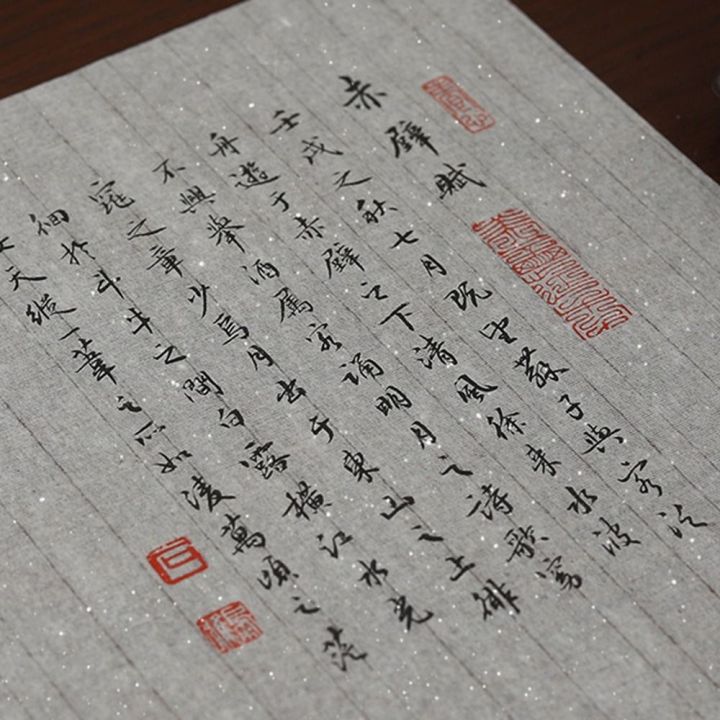 赤壁賦
壬戌之秋七月既望蘇子與客泛
舟遊于赤壁之下清風徐来水波
不興舉酒属客誦明月之詩歌窈
窕之章少焉月出于東山之上徘
徊於斗牛之間白露横江水光
天縱一葦之所如凌萬頃之茫